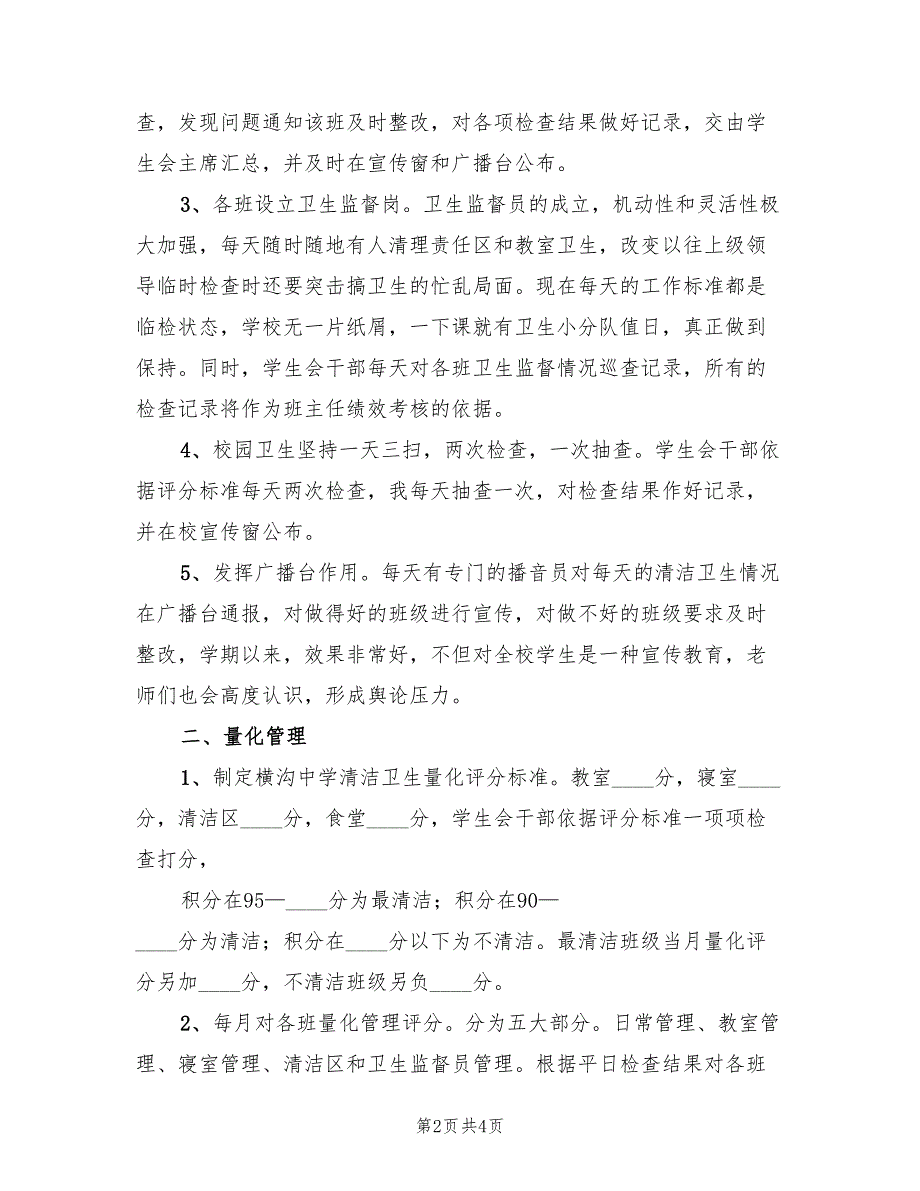 查，发现问题通知该班及时整改，对各项检查结果做好记录，交由学
生会主席汇总，并及时在宣传窗和广播台公布。
3、各班设立卫生监督岗。卫生监督员的成立，机动性和灵活性极
大加强，每天随时随地有人清理责任区和教室卫生，改变以往上级领
导临时检查时还要突击搞卫生的忙乱局面。现在每天的工作标准都是
临检状态，学校无一片纸屑，一下课就有卫生小分队值日，真正做到
保持。同时，学生会干部每天对各班卫生监督情况巡查记录，所有的
检查记录将作为班主任绩效考核的依据。
4、校园卫生坚持一天三扫，两次检查，一次抽查。学生会干部依
据评分标准每天两次检查，我每天抽查一次，对检查结果作好记录，
并在校宣传窗公布。
5、发挥广播台作用。每天有专门的播音员对每天的清洁卫生情况
在广播台通报，对做得好的班级进行宣传，对做不好的班级要求及时
整改，学期以来，效果非常好，不但对全校学生是一种宣传教育，老
师们也会高度认识，形成舆论压力。
二、量化管理
1、制定横沟中学清洁卫生量化评分标准。教室____分，寝室____
分，清洁区____分，食堂____分，学生会干部依据评分标准一项项检
查打分，
积分在95—____分为最清洁；积分在90—
____分为清洁；积分在____分以下为不清洁。最清洁班级当月量化评
分另加____分，不清洁班级另负____分。
2、每月对各班量化管理评分。分为五大部分。日常管理、教室管
理、寝室管理、清洁区和卫生监督员管理。根据平日检查结果对各班
第2页 共4页